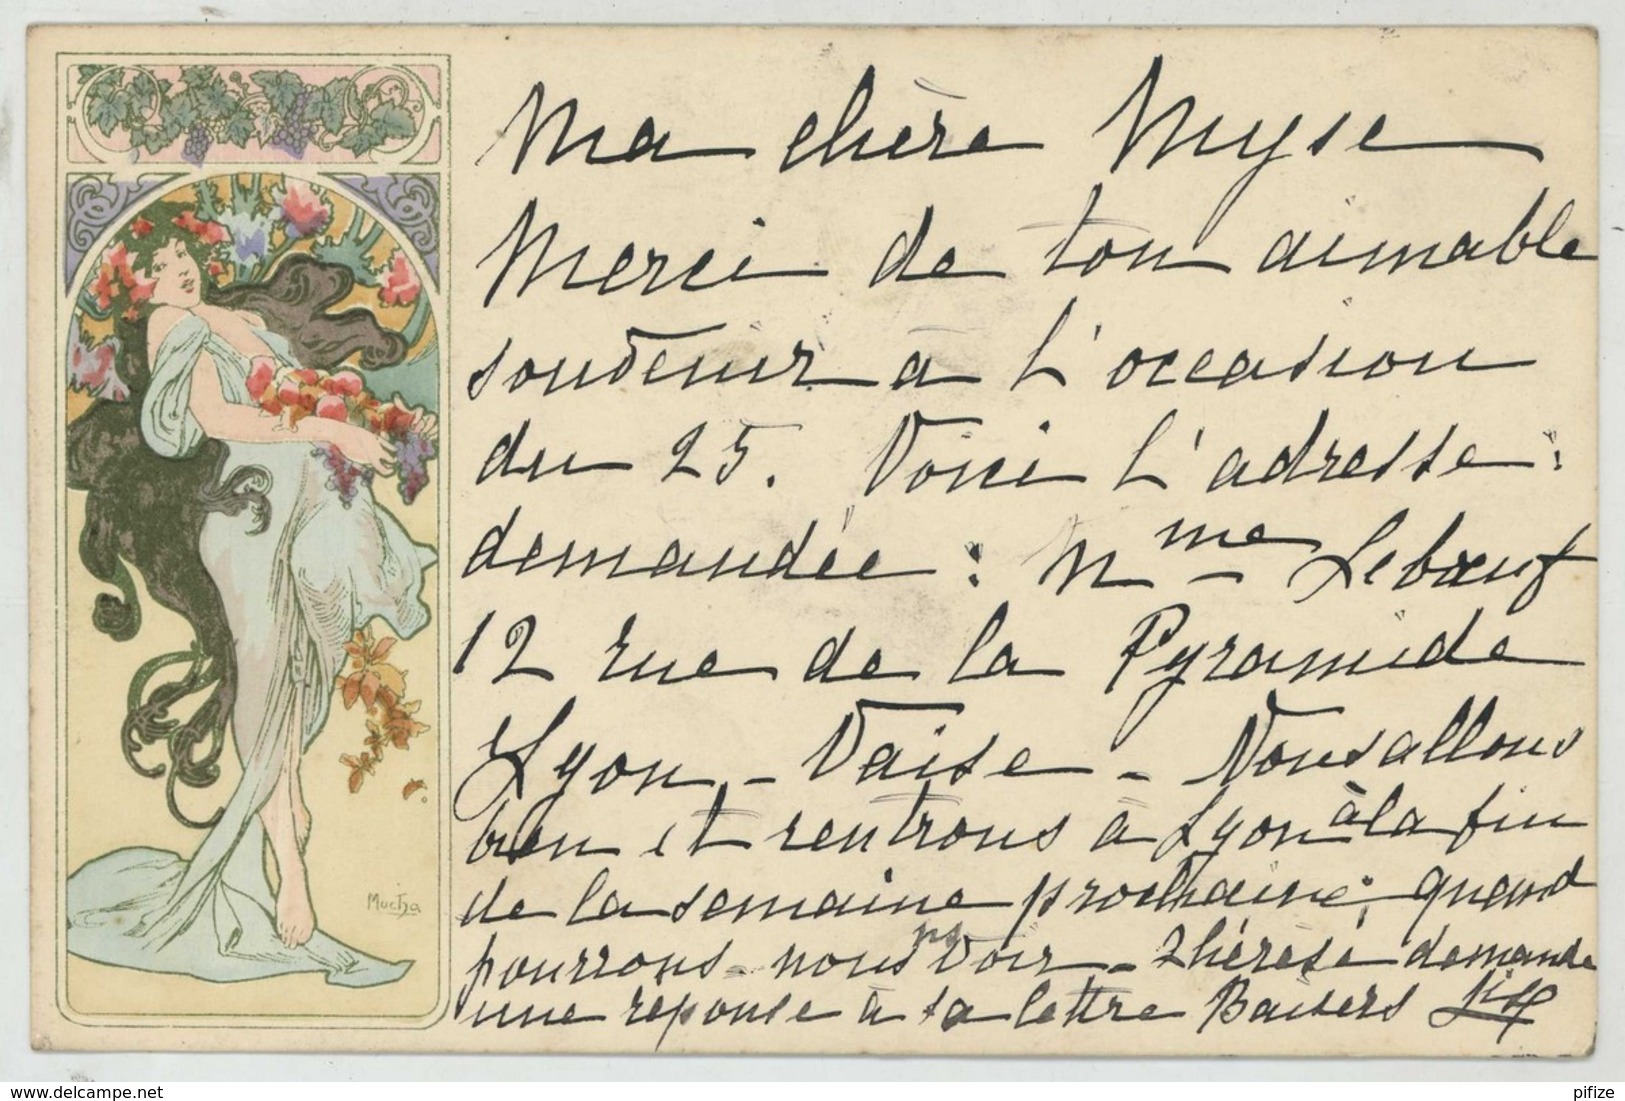 Ma chère Myse
Merci de ton aimable
souvenir à l'occasion
du 25. Voici l'adresse :
demandée : Mme Lebœuf
12 rue de la Pyramide
Lyon - Vaise - Nous allons
bien et rentrons à Lyon à la fin
de la semaine prochaine ; quand
pourrons-nous ns voir - Thérèse demande
une réponse à sa lettre Baisers
Mucha
pifize